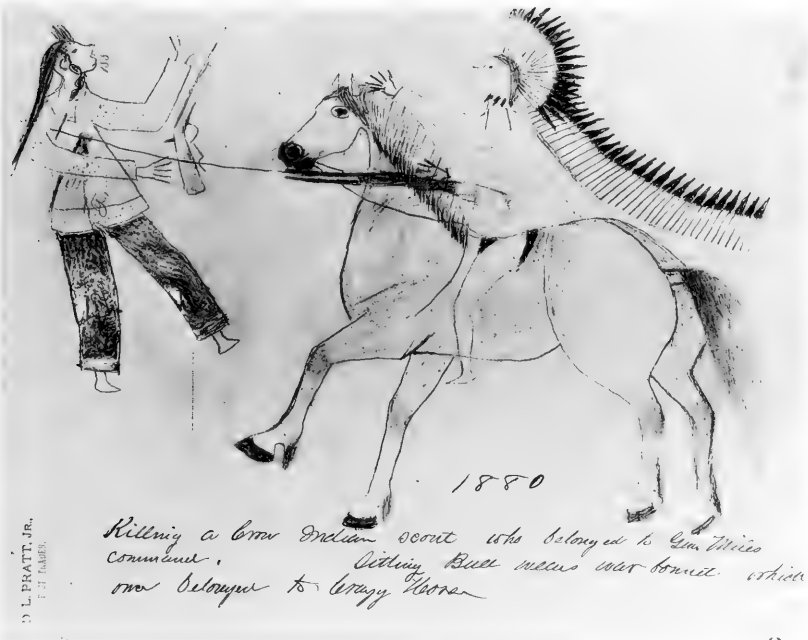 1880
Killing a Crow Indian scout who belonged to Gen. Miles
command. Sitting Bull wears war bonnet which
once belonged to Crazy Horse
L. PRATT, JR.,